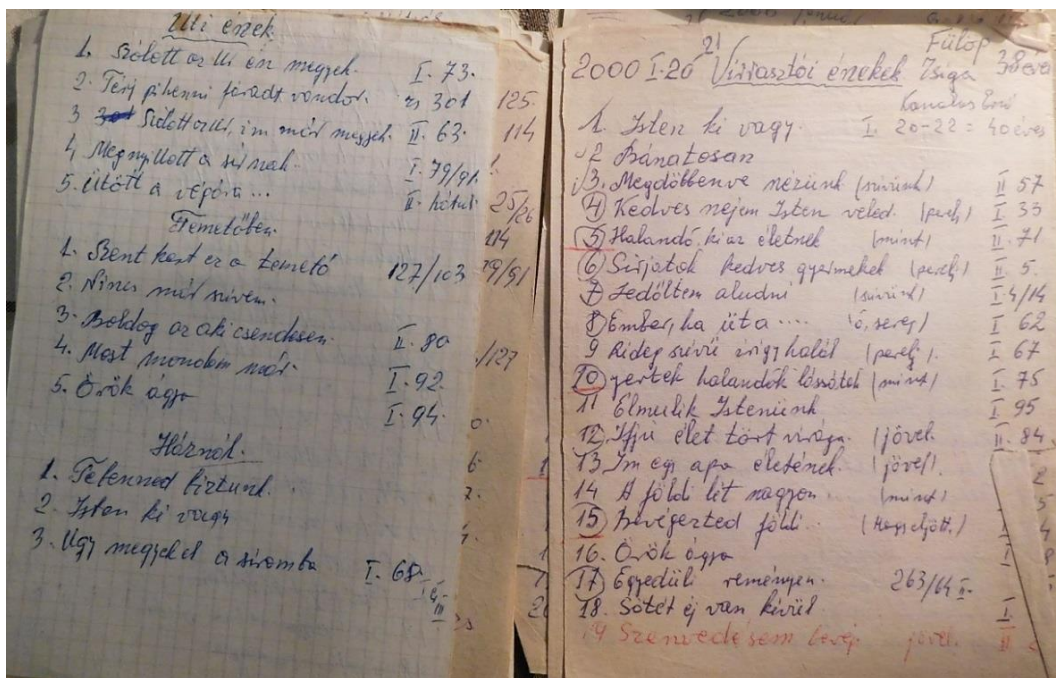 Úti ének
1. Szólott az Úr én megyek. I. 73.
2. Térj pihenni fáradt vándor. rs 301
3 Szólott az Úr, im már megyek. II. 63.
4 Megnyíllott a sírnak. I. 79/91.
5. Ütött a végóra ... II. hátul
Temetőben.
1. Szent kert ez a temető 127/103
2. Nincs már szívem.
3. Boldog az aki csendesen. II. 80
4. Most mondom már. I. 92.
5. Örök ágya I. 94.
Háznál.
1. Tebenned bíztunk.
2. Isten ki vagy
3. Úgy megyek el a síromba I. 68
125.
114
25/26
114
79/91
/127
2000 I. 20 21 Virrasztói énekek Fülöp Zsiga 38 éves
1. Isten ki vagy. I. 20-22 = 40 éves
2 Bánatosan
3. Megdöbbenve nézünk (szívünk) II 57
4 Kedves nejem Isten veled. (perelj) I. 33
5 Halandó, ki az életnek (mint) II. 71
6 Sirjatok kedves gyermekek (perelj) II 5.
7 Ledőltem aludni (szívünk) I. 4/14
8 Ember, ha úta .... I 62
9 Rideg szívű irigy halál (perelj). I. 67
10 jertek halandók lássátok (mint) I. 75
11 Elmulik Istenünk I. 95
12. Ifjú élet tört virága. (jövel. II. 84
13. Im egy apa életének. (jövel).
14 A földi lét nagyon. (mint)
15 Bevégezted földi..
16. Örök ágya
17 Egyedüli reményem. 263/64 II.
18. Sötét éj van kívül I
19 Szenvedésem jövel. II